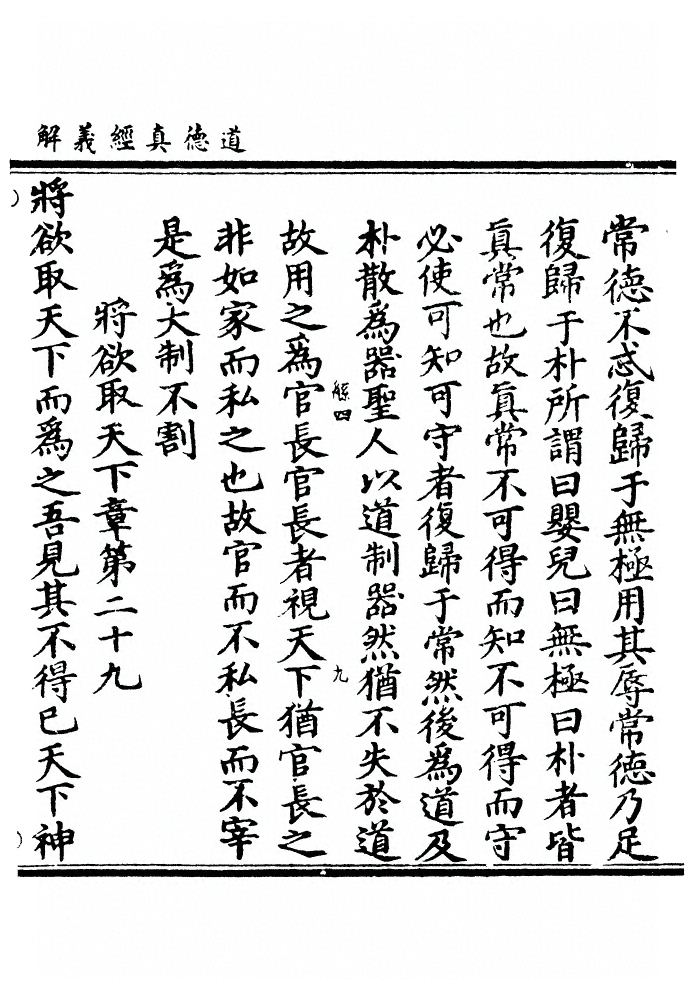 道德真經義解
常德不忒復歸于無極用其辱常德乃足
復歸于朴所謂曰嬰兒曰無極曰朴者皆
真常也故真常不可得而知不可得而守
必使可知可守者復歸于常然後爲道及
朴散爲器聖人以道制器然猶不失於道
解四
九
故用之爲官長官長者視天下猶官長之
非如家而私之也故官而不私長而不宰
是爲大制不割
將欲取天下章第二十九
將欲取天下而爲之吾見其不得已天下神